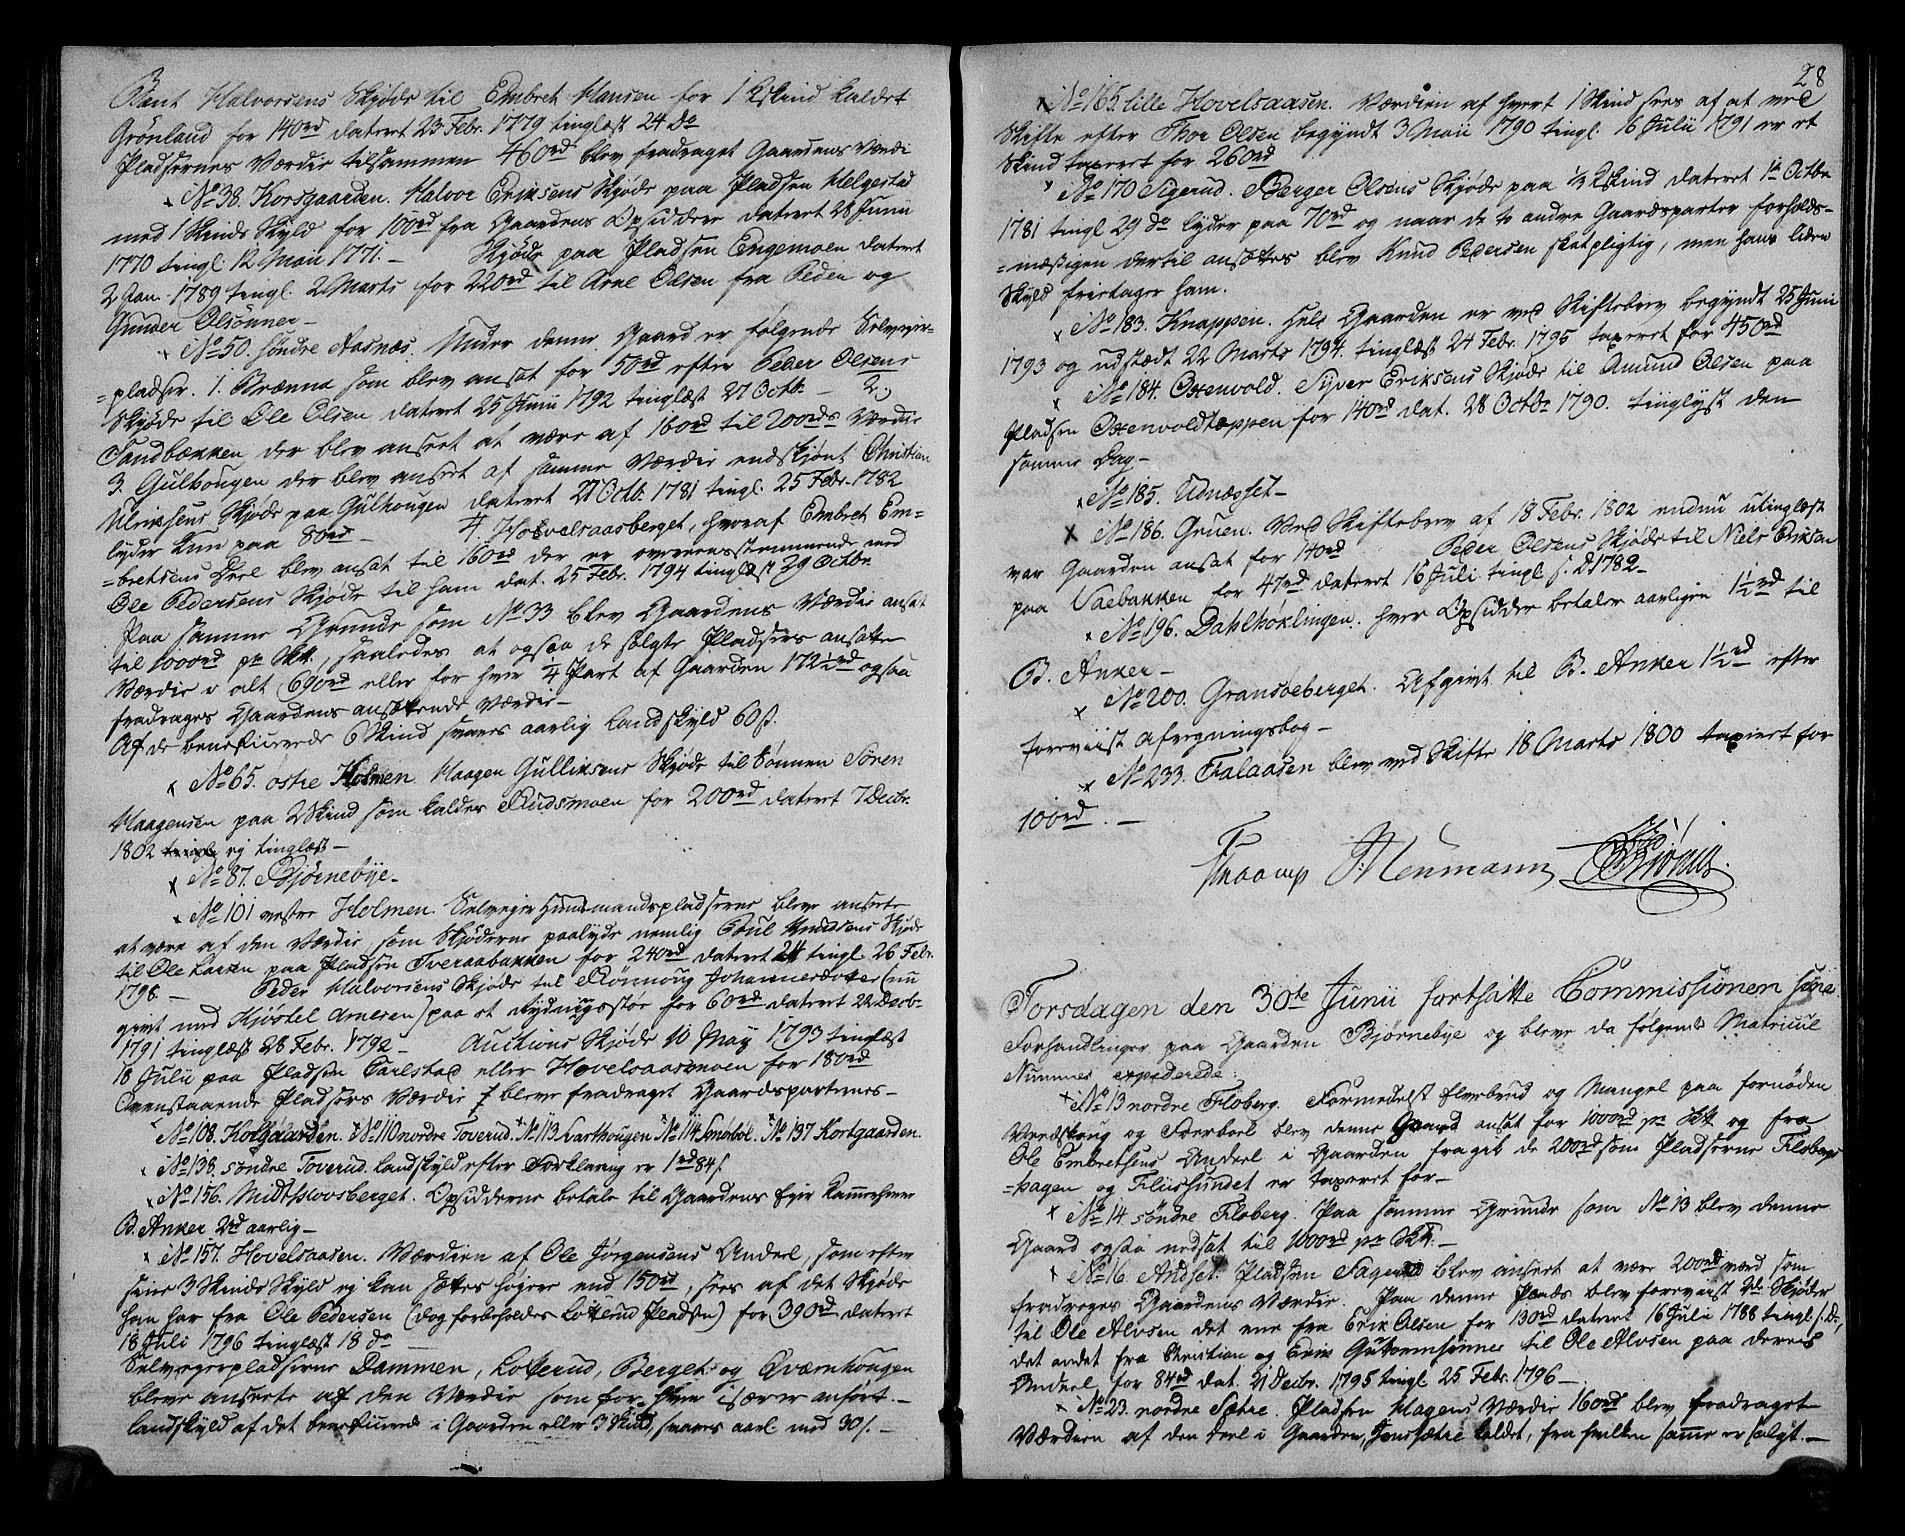 Bent Halvorsens Skjøde til Embret Hansen for 1 Skind kaldet
Grönland for 140rd dateret 23 Febr. 1779 tinglæst 24 Do
Pladsernes Værdie tilsammen 460rd blev fradraget Gaardens Værdi
x No 38. Korsgaarden. Halvor Eriksens Skjøde paa Pladsen Helgestad
med 1 Skinds Skyld for 100rd fra Gaardens Opsiddere dateret 28 Junii
1770 tingl. 12 Maii 1771. – Skjøde paa Pladsen Engemoen dateret
2 Jan. 1789 tingl. 2 Marts for 220rd til Arne Olsen fra Peder og
Gunder Olsønner –
x No 50. søndre Aasnæs. Under denne Gaard er følgende Selveier-
=pladser. 1. Brænna som blev ansat for 50rd efter Peder Olsens
Skjøde til Ole Olsen dateret 25 Junii 1792 tinglæst 27 Octb. – 2.)
Sandbækken der blev anseet at være af 160rd til 200rds Værdie
3. Gulhougen der blev anseet af samme Værdie endskjönt Christian
Ulriksens Skjøde paa Gulhougen dateret 27 Octb. 1781 tingl. 25 Febr. 1782
lyder kun paa 80rd – 4. Hovalsaasberget, hvoraf Embret Em-
=bretsens Deel blev ansat til 160rd der er overeensstemmende med
Ole Pedersens Skjøde til ham dat. 25 Febr. 1794 tinglæst 29 Octbr.
Paa samme Grunde som No 33 blev Gaardens Værdie ansat
til 1000rd pr Skt., saaledes at ogsaa de solgte Pladsers ansatte
Værdie i alt 690rd eller for hver 1/4 Part af Gaarden 172 1/2rd ogsaa
fradrages Gaardens ansættende Værdie –
Af de beneficerede 6 Skind svares aarlig Landskyld 60s.
x No 65. østre Holmen. Haagen Gulliksens Skjøde til Sønnen Søren
Haagensen paa 2 Skind som kaldes Rudsmoen for 200rd dateret 7 Decbr.
1802 ej tinglæst –
x No 87. Bjørnebye –
x No 101 vestre Holmen. Selveier Huusmandspladserne bleve ansete
at være af den Værdie som Skjøderne paalyde nemlig Poul Knudsens Skjøde
til Ole Larsen paa Pladsen Tveraabakken for 240rd dateret 24 tingl. 26 Febr.
1798. – Peder Halvorsens Skjøde til Rønnoug Johannesdotter (nu
givt med Kjøstel Arnesen) paa et Rydningsstør for 60rd dateret 22 Decb.
1791 tinglæst 28 Febr. 1792 – Auctions Skjøde 10 May 1793 tinglæst
18 Julii paa Pladsen Carlstad eller Hovelsaasmoen for 180rd
Ovenstaaende Pladsers Værdie bleve fradraget Gaardsparternes –
x No 108. Kolgaarden. x No 110 nordre Toverud. x No 113 Svarthougen x No 114 Smørbøl. x No 137 Kortgaarden.
x No 138. søndre Toverud. Landskyld efter Forklaring er 1rd 84s.
x No 156. Midtskovsberget. Opsidderne betale til Gaardens Ejer Kammerherre
B. Anker 2rd aarlig –
x No 157. Hovelsaasen. Værdien af Ole Jørgensens Andeel, som efter
sine 3 Skinds Skyld ej kan sættes højere end 150rd, sees af det Skjøde
han har fra Ole Pedersen (dog forbeholdes Lotterud Pladsen) for 390rd dateret
18 Juli 1796 tinglæst 18 do –
Selveyerpladserne Dammen, Lotterud, Berget og Qværnhougen
bleve ansete af den Værdie som for hver især er anført. –
Landskyld af det beneficerede i Gaarden eller 3 Skind, svares aarl. med 30s. –
28
x No 165. lille Hovelsaasen. Værdien af hvert 1 Skind sees af at ved
Skifte efter Thor Olsen begyndt 3 Maii 1790 tingl. 16 Julii 1791 er et
Skind taxeret for 260rd
x No 170 Sigerud. Berger Olsens Skjøde paa 1/2 Skind dateret 1te Octbr
1781 tingl 29 do lyder paa 70rd og naar de to andre Gaardsparter forholds-
=mæssigen dertil ansættes blev Knud Pedersen skatpligtig, men hans liden
Skyld frietager ham.
x No 183. Knappen. hele Gaarden er ved Skiftebrev begyndt 25 Junii
1793 og udstædt 22 Marts 1794. tinglæst 24 Febr. 1795 taxeret for 450rd
x No 184. Oxenvold. Syver Eriksens Skjøde til Amund Olsen paa
Pladsen Oxenvoldtoppen for 140rd dat. 28 Octbr 1790. tinglyst den
samme Dag –
x No 185. Udnæsset –
x No 186. Gruen. Ved Skiftebrev af 18 Febr. 1802 endnu utinglæst
var Gaarden ansat for 140rd Peder Olsens Skjøde til Niels Eriksen
paa Vaebakken for 47rd dateret 16 Juli tingl. s. D. 1782 –
x No 196. Dahlhøklingen. hver Opsidder betaler aarligen 1 1/2rd til
B. Anker –
x No 200. Gransøeberget. Afgivt til B. Anker 1 1/2rd efter
foreviist Afregningsbog –
x No 233. Falaasen blev ved Skifte 18 Marts 1800 taxeret for
100rd. –
Knoorup Neumann
Torsdagen den 30te Junii fortsatte Commissionen sine
Forhandlinger paa Gaarden Bjørnebye og bleve da følgende Matricul
Nummer expederede:
x No 13 nordre Floberg. Formedelst Elvebrud og Mangel paa fornøden
Vredskoug og Sæterboel blev denne Gaard ansat for 1000rd pr Skt og fra
Ole Embretsens Andeel i Gaarden fragik de 200rd som Pladserne Floberg-
=hagen og Fliissundet er taxeret for –
x No 14 søndre Floberg. Paa samme Grunde som No 13 blev denne
Gaard ogsaa nedsat til 1000rd pr Skt. –
x No 16. Andset. Pladsen Sagen blev anseet at være 200rd værd som
fradroges Gaardens Værdie. Paa denne Plads blev foreviist 2de Skjøder
til Ole Alvsen det ene fra Erik Olsen for 130rd dateret 16 Julii 1788 tingl. s. D.,
det andet fra Christian og Erik Guttormsønner til Ole Alvsen paa deres
Andeel for 84rd dat. 21 Decbr. 1795 tingl. 25 Febr. 1796 –
x No 23. nordre Sætre. Pladsen Hagens Værdie 160rd blev fradraget
Værdien af den Deel i Gaarden, Jenssætre kaldet, fra hvilken samme er solgt. –